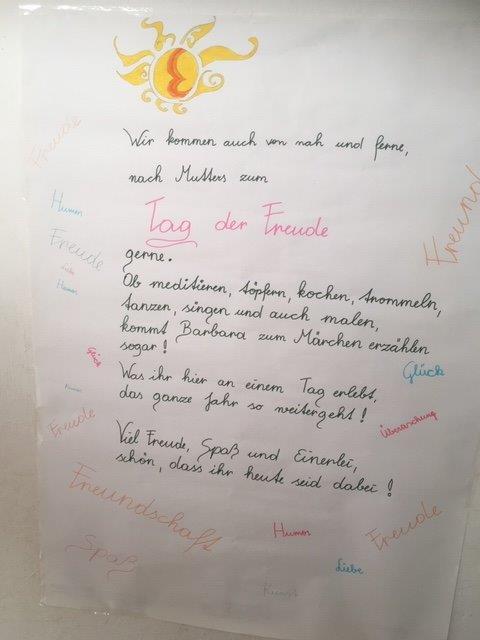 Wir kommen auch von nah und ferne,
nach Mutters zum
Tag der Freude
gerne.
Ob meditieren, töpfern, kochen, trommeln,
tanzen, singen und auch malen,
kommt Barbara zum Märchen erzählen
sogar!
Was ihr hier an einem Tag erlebt,
das ganze Jahr so weitergeht!
Viel Freude, Spaß und Einerlei,
schön, dass ihr heute seid dabei!
Freude
Humor
Freude
Liebe
Humor
Freude
Freund
Glück
Überraschung
Freundschaft
Spaß
Humor
Freude
Liebe
Kunst